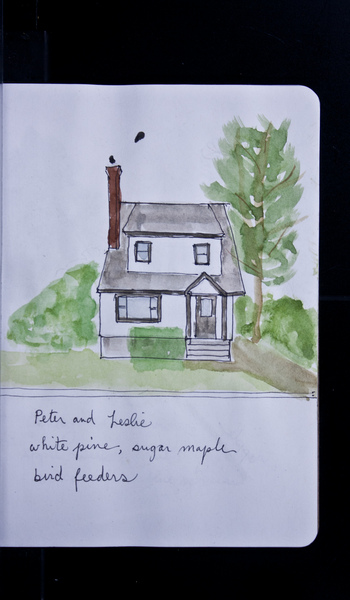 Peter and Leslie
white pine, sugar maple
bird feeders